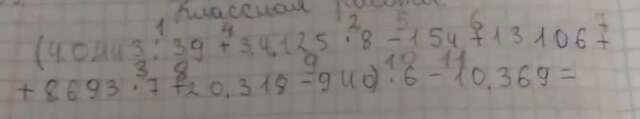 Классная работа
1 4 2 5 6 7
(40443 : 39 + 34,125 · 8 - 154 + 13106 +
3 8 9 10 11
+ 8693 · 7 + 20,318 - 940) : 6 - 10,369 =